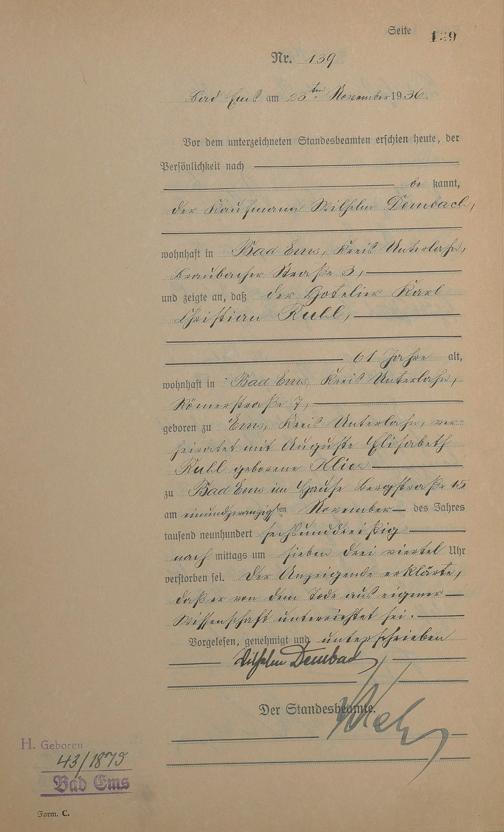 Seite 139
Nr. 139
Bad Ems am 23ten November 1936.
Vor dem unterzeichneten Standesbeamten erschien heute, der
Persönlichkeit nach
be kannt,
der Kaufmann Wilhelm Dembach,
wohnhaft in Bad Ems, Kreis Unterlahn,
Braubacher Straße 3,
und zeigte an, daß der Hotelier Karl
Christian Ruhl,
61 Jahre alt,
wohnhaft in Bad Ems, Kreis Unterlahn,
Römerstraße 7,
geboren zu Ems, Kreis Unterlahn, ver-
heiratet mit Auguste Elisabeth
Ruhl geborene
zu Bad Ems im Hause Bergstraße 15
am einundzwanzigsten November des Jahres
tausend neunhundert sechsunddreißig
nach mittags um sieben drei viertel Uhr
verstorben sei. Der Anzeigende erklärte,
daß er von dem Tode aus eigner
Wissenschaft unterrichtet sei.
Vorgelesen, genehmigt und unterschrieben
Wilhelm Dembach
Der Standesbeamte.
H. Geboren
43/1875
Bad Ems
Form. C.